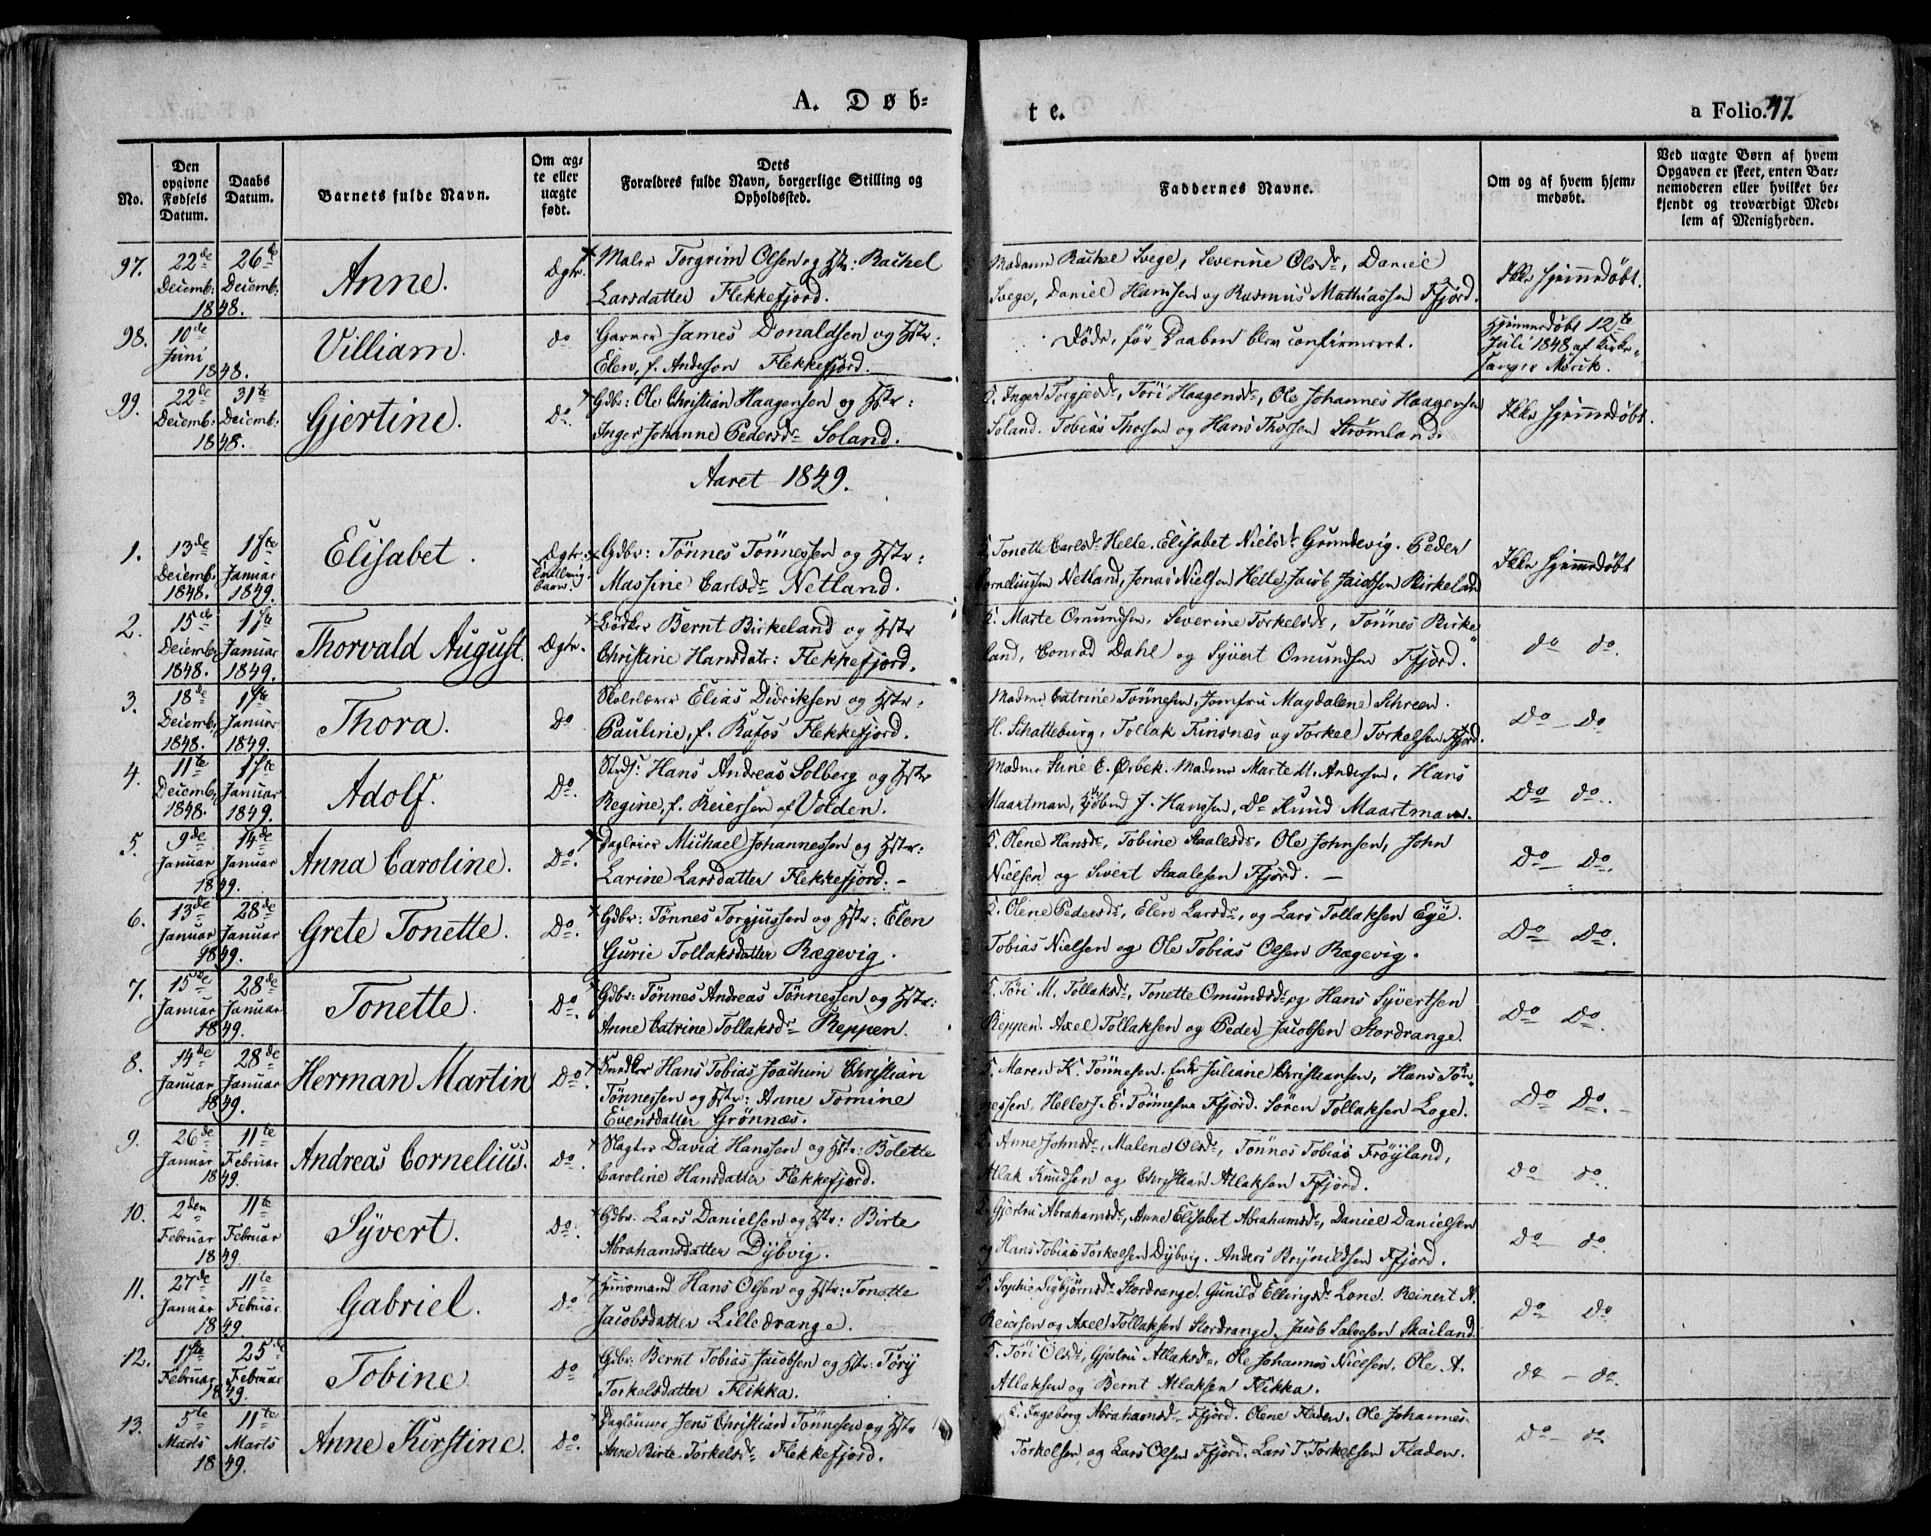 A. Døb-
te.
a Folio. 47.
No.
Den opgivne Fødsels Datum.
Daabs Datum.
Barnets fulde Navn.
Om ægte eller uægte født.
Dets Forældres fulde Navn, borgerlige Stilling og Opholdssted.
Faddernes Navne.
Om og af hvem hjemmedøbt.
Ved uægte Børn af hvem Opgaven er skeet, enten Barnemoderen eller hvilket bekjendt og troværdigt Medlem af Menigheden.
97. 22de Decemb: 1848. 26de Decemb: Anne. Ægte. Maler Torgrim Olsen og Hstr: Rachel
Larsdatter Flekkefjord.
Madame Rachel Svege, Severine Olsdr, Daniel
Svege, Daniel Hansen og Rasmus Mathiassen Ffjord.
Ikke hjemmedøbt.
98. 10de Juni 1848. Villiam. do Garver James Donaldsen og Hstr:
Elen, f. Anderson Flekkefjord.
Døde, før Daaben blev confirmeret.
Hjemmedøbt 12te
Juli 1848 af Kirke-
sanger Mörik.
99. 22de Decemb: 1848. 31te Decemb: Gjertine. Do. Gdbr: Ole Christian Haagensen og Hstr:
Inger Johanne Pedersdr Soland.
F. Inger Torgjesdr, Töri Haagensdr, Ole Johannes Haagensen
Soland. Tobias Thorsen og Hans Thorsen Strömland.
Ikke hjemmedøbt.
Aaret 1849.
1. 13de Decemb: 1848. 1ste Januar 1849. Elisabet. Ægte: Tvillingbarn. Gdbr: Tönnes Tönnessen og Hstr:
Massine Carlsdr Netland.
F. Tonette Carlsdr Helle, Elisabet Nielsdr Grundevig. Peder
Corneliussen Netland, Jonas Nielsen Helle, Jacob Jacobsen Birkeland
Ikke hjemmedöbt
2. 15de Decemb: 1848. 1ste Januar 1849. Thorvald August. Ægte. Bödker Bernt Birkeland og Hstr
Christine Hansdatr: Flekkefjord.
F. Marte Omundsen, Severine Torkelsdr, Tönnes Birke-
land, Conrad Dahl og Syvert Omundsen Ffjord.
do do.
3. 18de Decemb: 1848. 1ste Januar 1849. Thora. Do Skolelærer Elias Didriksen og Hstr:
Pauline, f. Rafos Flekkefjord.
Madme Catrine Tönnesen, Jomfru Magdalene Schreen.
H. Schatteburg, Tollak Tinsnæs og Torkel Torkelsen Ffjord.
Do Do
4. 11te Decemb: 1848. 1ste Januar 1849. Adolf. Do. Hans Andreas Solberg og Hstr
Regine, f. Reiersen af Volden.
Madme E. Örbek. Madme Marte M. Andersen, Hans
Maartman, J. Hansen, Do Knud Maartman.
Do do.
5. 9de Januar 1849. 14de Januar Anna Caroline. Do. Daglejer Michael Johannessen og Hstr:
Larine Larsdatter Flekkefjord.
F. Olene Hansdr, Tobine Staalesdr, Ole Johnsen, John
Nielsen og Sivert Staalesen Ffjord.
Do Do.
6. 13de Januar 1849. 28de Januar Grete Tonette. Do. Gdbr: Tönnes Torgjussen og Hstr: Elen
Gurie Tollaksdatter Rægevig.
F. Olene Pedersdr, Elen Larsdr, og Lars Tollaksen Ege.
Tobias Nielsen og Ole Tobias Olsen Rægevig.
Do Do.
7. 15de Januar 1849. 28de Januar Tonette. Do. Gdbr: Tönnes Andreas Tönnessen og Hstr:
Anne Catrine Tollaksdr Reppen.
F. Töri M. Tollaksdr, Tonette Omundsdr og Hans Syvertsen
Reppen. Axel Tollaksen og Peder Jacobsen Stordrange.
Do Do.
8. 14de Januar 1849. 28de Januar Herman Martin Do. Hans Tobias Joachim Christian
Tönnessen og Hstr: Anne Tomine
Evensdatter Grönnæs.
F. Maren K. Tönnesen, Enke Juliane Christiansen, Hans Tön-
nessen, E. Tönnesen Ffjord. Sören Tollaksen Loge.
Do Do.
9. 26de Januar 1849. 11te Februar Andreas Cornelius. Do. Slagter David Hanssen og Hstr: Bolette
Caroline Hansdatter Flekkefjord.
F. Anne Johnsdr, Malene Olsdr, Tönnes Tobias Fröyland,
Atlak Knudsen og Christian Atlaksen Ffjord.
Do do.
10. 2den Februar 1849. 11te Februar Syvert. Do. Gdbr. Lars Danielsen og Hstr: Birte
Abrahamsdatter Dybvig.
F. Gjertru Abrahamsdr, Anne Elisabet Abrahamsdr, Daniel Danielsen
og Hans Tobias Torkelsen Dybvig. Anders Brynildsen Ffjord.
Do do.
11. 27de Januar 1849. 11te Februar Gabriel. Do Huusmand Hans Olsen og Hstr: Tonette
Jacobsdatter Lilledrange.
F. Sophie Sigbjörnsdr Stordrange. Gunild Ellingsdr Lone. Reinert N.
Reiersen og Axel Tollaksen Stordrange. Jacob Salvesen Skailand.
Do Do
12. 1ste Februar 1849. 25de Februar Tobine. Do Gdbr: Bernt Tobias Jacobsen og Hstr: Töry
Torkelsdatter Flikka.
F. Töri Olsdr, Gjertru Atlaksdr, Ole Johannes Nielsen. Ole A.
Atlaksen og Bernt Atlaksen Flikka.
do - do.
13. 5te Marts 1849. 11te Marts Anne Kirstine. Do. Daglönner Jens Christian Tönnesen og Hstr
Anne Birte Torkelsdr Flekkefjord.
F. Ingeborg Abrahamsdr Ffjord. Olene Fladen. Ole Johannes
Torkelsen, og Lars Olsen Ffjord. Lars T. Torkelsen Fladen.
Do - do